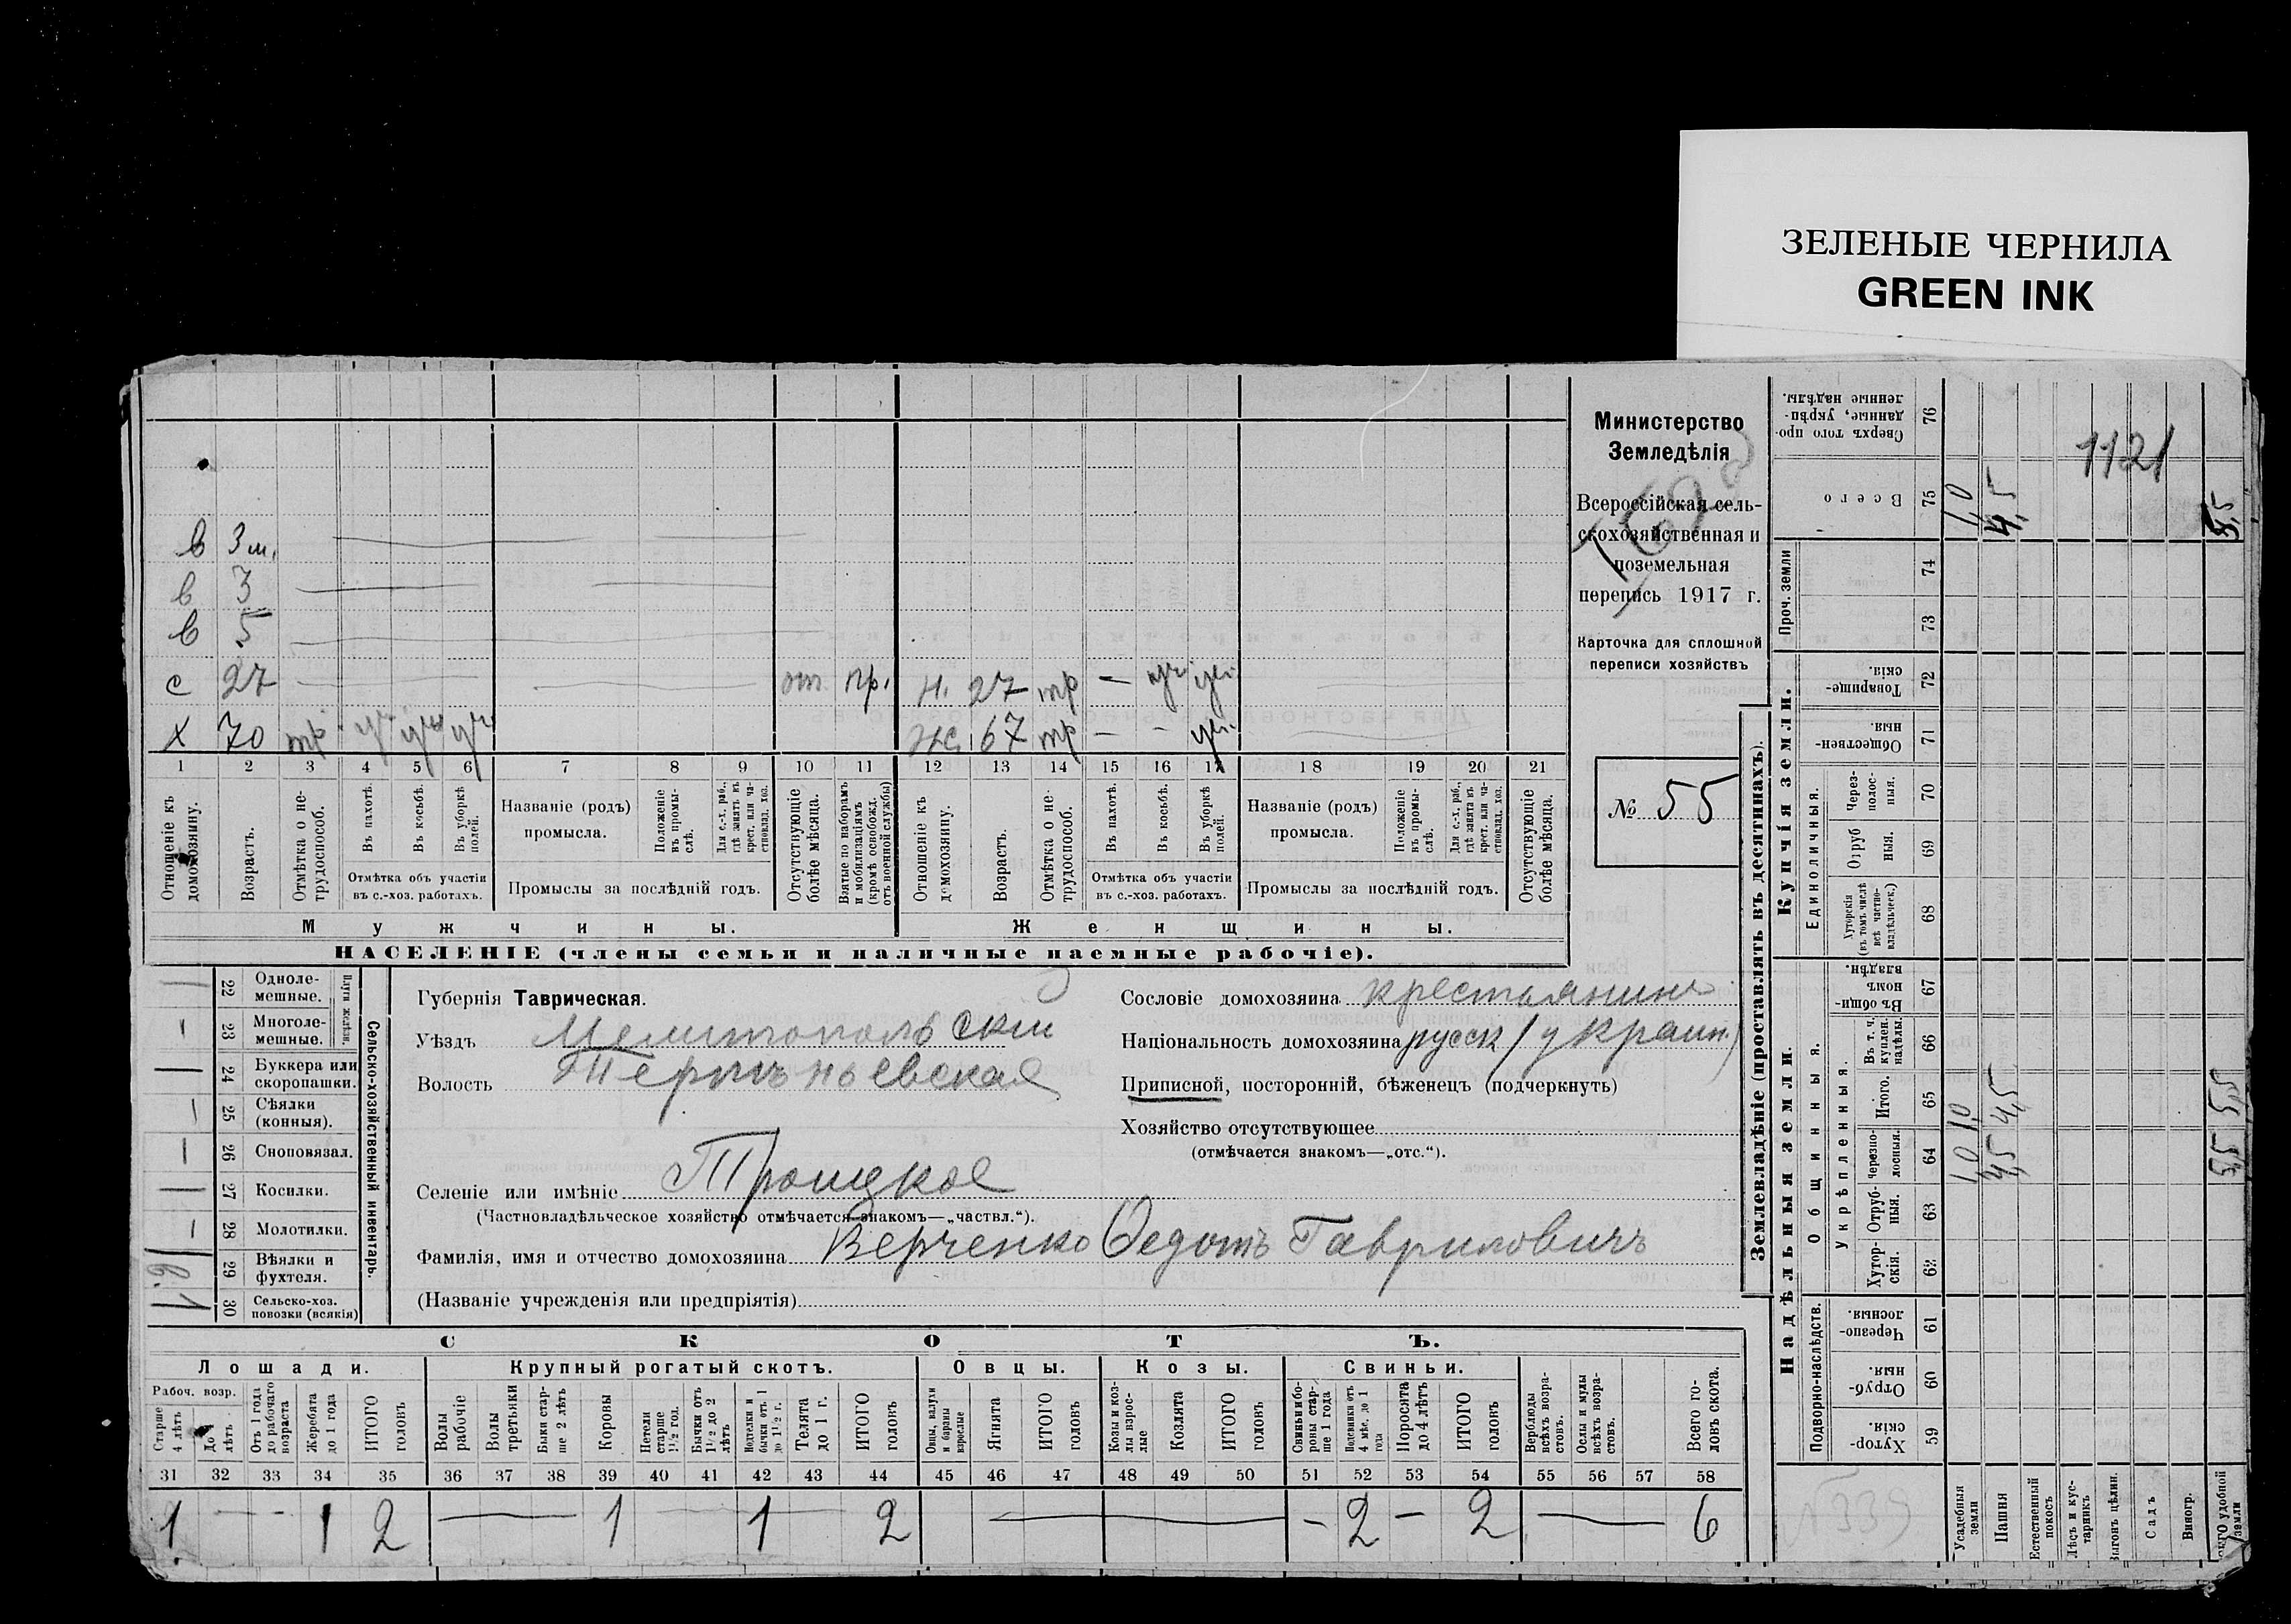 ЗЕЛЕНЫЕ ЧЕРНИЛА
GREEN INK
Министерство
Земледѣлія
Всероссійская сель-
скохозяйственная и
поземельная
перепись 1917 г.
Карточка для сплошной
переписи хозяйствъ
№ 55
в 3 м.
в 3
в 5
с 27 от. пр. н. 27 тр — уч уч
х 70 тр уч уч уч же 67 тр — - уч.
1 2 3 4 5 6 7 8 9 10 11 12 13 14 15 16 17 18 19 20 21
Отношеніе къ домохозяину.
Возрастъ.
Отмѣтка о не-трудоспособ.
Въ пахотѣ.
Въ косьбѣ.
Въ уборкѣ полей.
Отмѣтка объ участіи
въ с.-хоз. работахъ.
Названіе (родъ)
промысла.
Положеніе въ промы-слѣ.
Для с.-х. раб., гдѣ занятъ въ крест. или ча-стновлад. хоз.
Промыслы за послѣдній годъ.
Отсутствующіе болѣе мѣсяца.
Взятые по наборамъ и мобилизаціямъ (кромѣ освобожд. отъ военной службы)
Отношеніе къ домохозяину.
Возрастъ.
Отмѣтка о не-трудоспособ.
Въ пахотѣ.
Въ косьбѣ.
Въ уборкѣ полей.
Отмѣтка объ участіи
въ с.-хоз. работахъ.
Названіе (родъ)
промысла.
Положеніе въ промы-слѣ.
Для с.-х. раб., гдѣ занята въ крест. или ча-стновлад. хоз.
Промыслы за послѣдній годъ.
Отсутствующіе болѣе мѣсяца.
Мужчины. Женщины.
НАСЕЛЕНІЕ (члены семьи и наличные наемные рабочіе).
Сельско-хозяйственный инвентарь.
Плуги желѣзн.
22 Одноле-мешные.
23 Многоле-мешные.
24 Буккера или скоропашки.
25 Сѣялки (конныя).
26 Сноповязал.
27 Косилки.
28 Молотилки.
29 Вѣялки и фухтеля.
30 Сельско-хоз. повозки (всякія)
Губернія Таврическая.
Уѣздъ Мелитопольскій
Волость
Селеніе или имѣніе Троицкое
(Частновладѣльческое хозяйство отмѣчается знакомъ—„частвл.“).
Фамилія, имя и отчество домохозяина Верченко Федотъ Гавриловичъ
(Названіе учрежденія или предпріятія)
Сословіе домохозяина крестьянинъ
Національность домохозяина русск (украин.)
Приписной, посторонній, бѣженецъ (подчеркнуть)
Хозяйство отсутствующее
(отмѣчается знакомъ—„отс.“).
СКОТЪ.
Лошади. Крупный рогатый скотъ. Овцы. Козы. Свиньи.
Рабоч. возр.
Старше 4 лѣтъ
До 4 лѣтъ
Отъ 1 года до рабочаго возраста
Жеребята до 1 года
ИТОГО головъ
Волы рабочіе
Волы третьяки
Быки стар-ше 2 лѣтъ
Коровы
Нетели старше 1½ год.
Бычки отъ 1½ до 2 лѣтъ
Подтелки и бычки отъ 1 до 1½ г.
Телята до 1 г.
ИТОГО головъ
Овцы, валухи и бараны взрослые
Ягнята
ИТОГО головъ
Козы и коз-лы взрос-лые
Козлята
ИТОГО головъ
Свиньи и бо-ровы стар-ше 1 года
Подсвинки отъ 4 мѣс. до 1 года
Поросята до 4 лѣтъ
ИТОГО головъ
Верблюды всѣхъ возра-стовъ.
Ослы и мулы всѣхъ возра-стовъ.
Всего го-ловъ скота.
31 32 33 34 35 36 37 38 39 40 41 42 43 44 45 46 47 48 49 50 51 52 53 54 55 56 57 58
1 — - 1 2 — 1 — 1 — 2 — - 2 — 2 — 6
Землевладѣніе (проставлять въ десятинахъ).
Купчія земли.
Надѣльныя земли.
Сверхъ того про-данные, укрѣп-ленные надѣлы. 76
Всего 75 1,0 4,5 5,5
1121
Проч. земли 74
73
Товарище-скія. 72
Обществен-ныя. 71
Единоличныя.
Через-полос-ныя. 70
Отруб ныя. 69
Хуторскія (въ томъ числѣ всѣ частно-владѣльческ.) 68
Въ общин-номъ владѣн. 67
Общинныя.
Укрѣпленныя.
Въ т. ч. куплен. надѣлы. 66
Итого. 65 1,0 4,5 5,5
Черезпо-лосныя. 64 1,0 4,5 5,5
Отруб-ныя. 63
Хутор-скія. 62
Подворно-наслѣдств.
Черезпо-лосныя. 61
Отруб-ныя. 60
Хутор-скія. 59
Усадебныя земли
Пашня
Естественный покосъ
Лѣсъ и кус-тарникъ
Выгонъ цѣлин.
Садъ
Виногр.
удобной земли